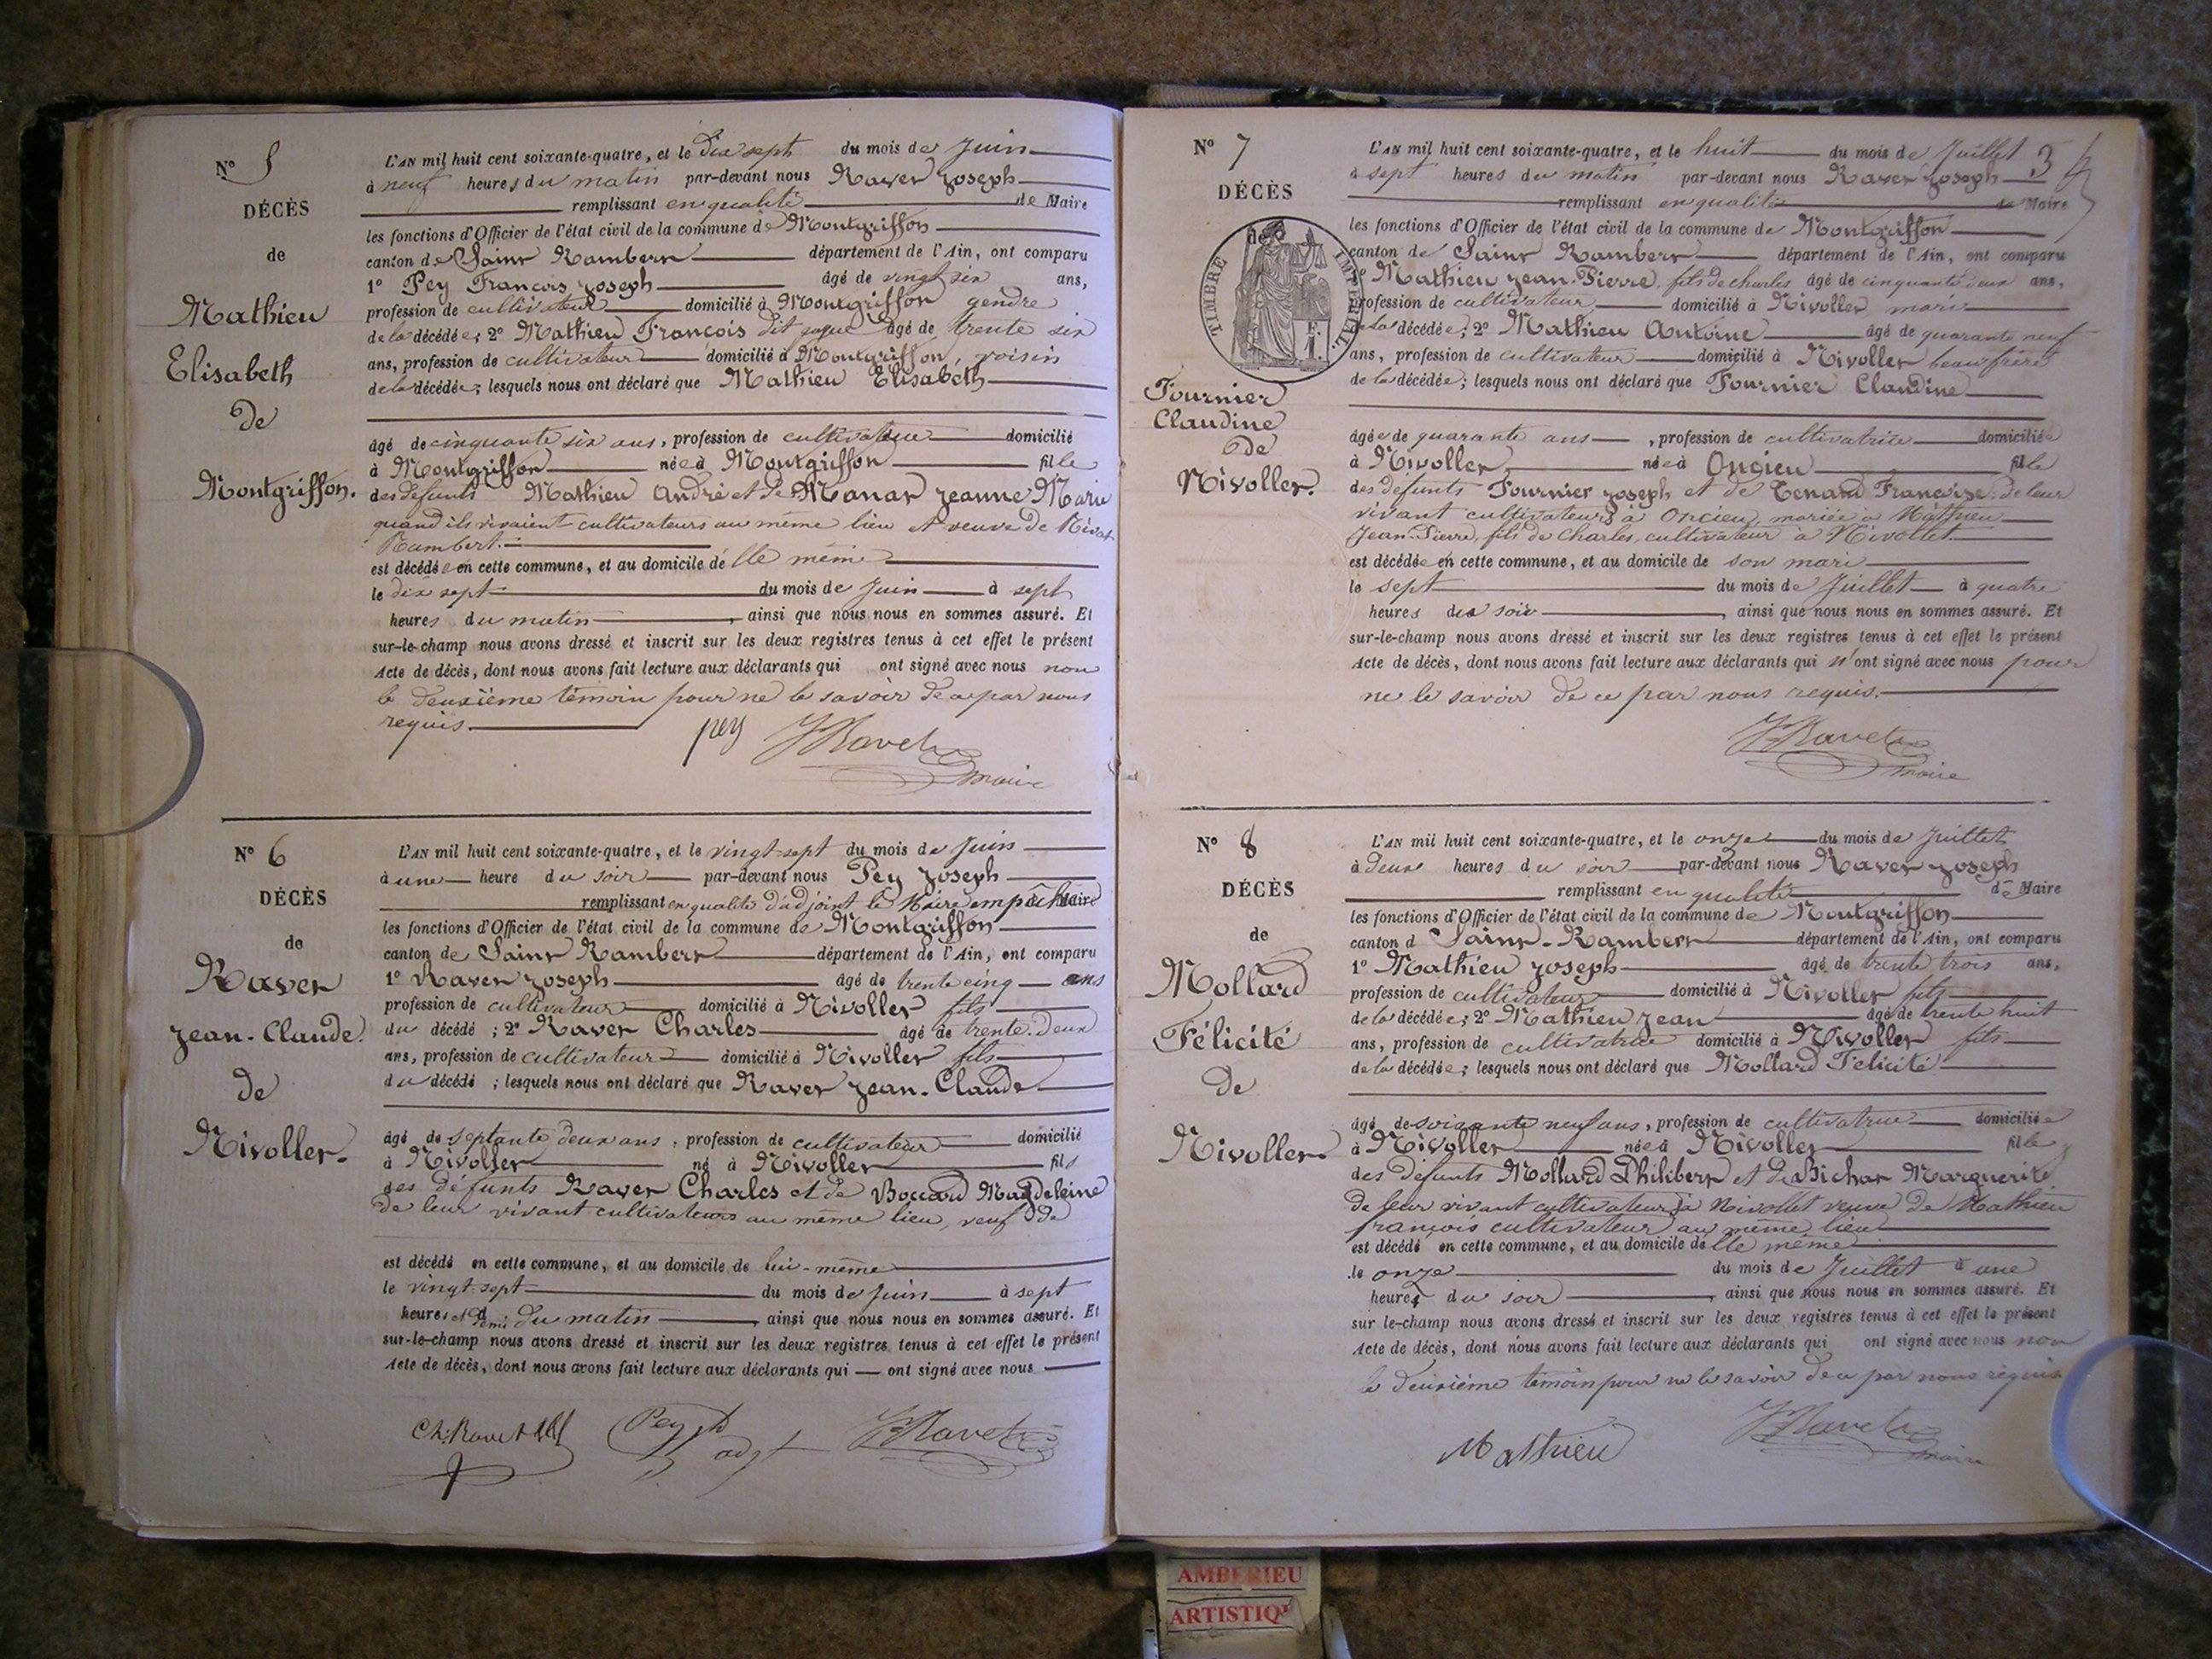 N° 5
DÉCÈS
de
Mathieu
Elisabeth
de
Montgriffon.
L'AN mil huit cent soixante-quatre, et le dix sept du mois de Juin
à neuf heures du matin par-devant nous Ravet Joseph
remplissant en qualité de Maire
les fonctions d'Officier de l'état civil de la commune de Montgriffon
canton de Saint Rambert département de l'Ain, ont comparu
1° Pey François Joseph âgé de vingt six ans,
profession de cultivateur domicilié à Montgriffon gendre
de la décédée; 2° Mathieu François dit âgé de trente six
ans, profession de cultivateur domicilié à Montgriffon, voisin
de la décédée; lesquels nous ont déclaré que Mathieu Elisabeth
âgé de cinquante six ans, profession de cultivateur domicilié
à Montgriffon née à Montgriffon fille
des défunts Mathieu André et de Manat Jeanne Marie
quand ils vivaient cultivateurs au même lieu et veuve de
Rambert.
est décédée en cette commune, et au domicile d'elle même
le dix sept du mois de Juin à sept
heures du matin, ainsi que nous nous en sommes assuré. Et
sur-le-champ nous avons dressé et inscrit sur les deux registres tenus à cet effet le présent
Acte de décès, dont nous avons fait lecture aux déclarants qui ont signé avec nous non
le deuxième témoin pour ne le savoir de ce par nous
requis.
pey JRavet
maire
N° 6
DÉCÈS
de
Ravet
Jean-Claude
de
Nivollet.
L'AN mil huit cent soixante-quatre, et le vingt-sept du mois de Juin
à une heure du soir par-devant nous Pey Joseph
remplissant en qualité d'adjoint le Maire empêché Maire
les fonctions d'Officier de l'état civil de la commune de Montgriffon
canton de Saint Rambert département de l'Ain, ont comparu
1° Ravet Joseph âgé de trente cinq ans
profession de cultivateur domicilié à Nivollet fils
du décédé; 2° Ravet Charles âgé de trente-deux
ans, profession de cultivateur domicilié à Nivollet fils
du décédé; lesquels nous ont déclaré que Ravet Jean-Claude
âgé de septante deux ans, profession de cultivateur domicilié
à Nivollet né à Nivollet fils
des défunts Ravet Charles et de Bouard Magdeleine
de leur vivant cultivateurs au même lieu, veuf de
est décédé en cette commune, et au domicile de lui-même
le vingt-sept du mois de Juin à sept
heures et demi du matin, ainsi que nous nous en sommes assuré. Et
sur-le-champ nous avons dressé et inscrit sur les deux registres tenus à cet effet le présent
Acte de décès, dont nous avons fait lecture aux déclarants qui ont signé avec nous
Ch. Ravet Pey JRavet
adjt
N° 7
DÉCÈS
de
TIMBRE IMPÉRIAL
F.
1.
Fournier
Claudine
de
Nivollet.
3
L'AN mil huit cent soixante-quatre, et le huit du mois de Juillet
à sept heures du matin par-devant nous Ravet Joseph
remplissant en qualité de Maire
les fonctions d'Officier de l'état civil de la commune de Montgriffon
canton de Saint Rambert département de l'Ain, ont comparu
1° Mathieu Jean-Pierre, fils de charles âgé de cinquante deux ans,
profession de cultivateur domicilié à Nivollet mari
de la décédée; 2° Mathieu Antoine âgé de quarante neuf
ans, profession de cultivateur domicilié à Nivollet beau frère
de la décédée; lesquels nous ont déclaré que Fournier Claudine
âgée de quarante ans, profession de cultivatrice domiciliée
à Nivollet née à Oncieu fille
des défunts Fournier Joseph et de Tenand Françoise de leur
vivant cultivateurs à Oncieu, mariée à Mathieu
Jean-Pierre, fils de Charles, cultivateur à Nivollet.
est décédée en cette commune, et au domicile de son mari
le sept du mois de Juillet à quatre
heures du soir, ainsi que nous nous en sommes assuré. Et
sur-le-champ nous avons dressé et inscrit sur les deux registres tenus à cet effet le présent
Acte de décès, dont nous avons fait lecture aux déclarants qui n'ont signé avec nous pour
ne le savoir de ce par nous requis.
JRavet
maire
N° 8
DÉCÈS
de
Mollard
Félicité
de
Nivollet.
L'AN mil huit cent soixante-quatre, et le onze du mois de Juillet
à deux heures du soir par-devant nous Ravet Joseph
remplissant en qualité de Maire
les fonctions d'Officier de l'état civil de la commune de Montgriffon
canton d Saint-Rambert département de l'Ain, ont comparu
1° Mathieu Joseph âgé de trente trois ans,
profession de cultivateur domicilié à Nivollet fils
de la décédée; 2° Mathieu Jean âgé de trente huit
ans, profession de cultivatrice domicilié à Nivollet fils
de la décédée; lesquels nous ont déclaré que Mollard Félicité
âgé de soixante neuf ans, profession de cultivatrice domiciliée
à Nivollet née à Nivollet fille
des défunts Mollard Philibert et de Bichat Marguerite
de leur vivant cultivateurs à Nivollet veuve de Mathieu
françois cultivateur au même lieu
est décédé en cette commune, et au domicile d'elle même
le onze du mois de Juillet à une
heures du soir, ainsi que nous nous en sommes assuré. Et
sur le-champ nous avons dressé et inscrit sur les deux registres tenus à cet effet le présent
Acte de décès, dont nous avons fait lecture aux déclarants qui ont signé avec nous non
le deuxième témoin pour ne le savoir de ce par nous requis
Mathieu JRavet
maire
AMBERIEU
ARTISTIQ